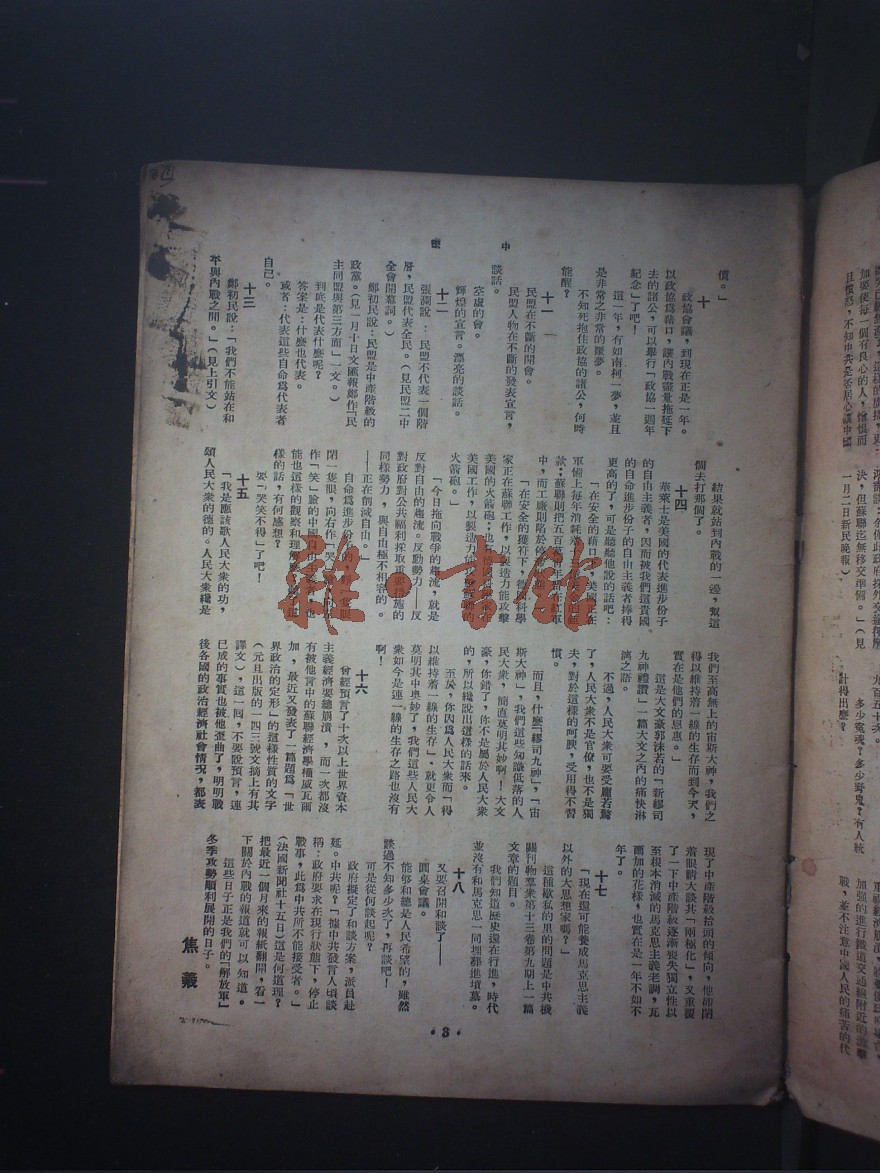 中
堅
債。」
十
政協會議，到現在正是一年。
以政協為藉口，讓內戰盡量拖延下
去的諸公，可以舉行「政協一週年
紀念」了吧！
這一年，有如南柯一夢，並且
是非常之非常的噩夢。
不知死抱住政協的諸公，何時
能醒？
十一
民盟在不斷的開會。
民盟人物在不斷的發表宣言，
談話。
空虛的會。
輝煌的宣言。漂亮的談話。
十二
張瀾說：民盟不代表一個階
層，民盟代表全民。（見民盟二中
全會開幕詞。）
鄭初民說：民盟是中產階級的
政黨。（見一月十日文匯報鄭作「民
主同盟與第三方面」一文。）
到底是代表什麼呢？
答案是：什麼也代表。
或者：代表這些自命為代表者
自己。
十三
鄭初民說：「我們不能站在和
平與內戰之間。」（見上引文）
結果就站到內戰的一邊，幫這
個去打那個了。
十四
華萊士是美國的代表進步份子
的自由主義者，因而被我們這貴國
的自命進步份子的自由主義者捧得
更高的了，可是聽聽他說的話吧：
「在安全的藉口下，英國正在
軍備上每年消耗
款；蘇聯則把五百萬
中，而工廠則陷於停
「在安全的獲符下，德國科學
家正在蘇聯工作，以製造力能攻擊
美國的火箭砲；也
美國工作，以製造力能
火箭砲。」
「今日拖向戰爭的趨流，就是
反對自由的趨流。反動勢力——反
對政府對公共福利採取重要措施的
同樣勢力，與自由極不相容的。
——正在削減自由。」
自命為進步份子的，
閉一隻眼，向右作「哭」
作「笑」臉的中國自由
能也這樣的觀察和理解
樣的話，有何感想？
要「哭笑不得」了吧！
十五
「我是應該歌人民大衆的功，
頌人民大衆的德的。人民大衆纔是
我們至高無上的宙斯大神，我們之
得以維持着一線的生存而到今天，
實在是他們的恩惠。」
這是大文豪郭沫若的「新繆司
九神禮讚」一篇大文之內的痛快淋
漓之語。
不過，人民大衆可要受寵若驚
了，人民大衆不是官僚，也不是獨
夫，對於這樣的呵腴，受用得不習
慣。
而且，什麼「繆司九神」，「宙
斯大神」，我們這些知識低落的人
民大衆，簡直莫明其妙啊！大文
豪，你錯了，你不是屬於人民大衆
的，所以纔說出這樣的話來。
至於，你因為人民大衆而「得
以維持着一線的生存」，就更令人
莫明其中奧妙了，我們這些人民大
衆如今是連一線的生存之路也沒有
啊！
十六
曾經預言了十次以上世界資本
主義經濟要總崩潰，而一次都沒
有被他言中的蘇聯經濟學權威瓦爾
加，最近又發表了一篇題為「世
界政治的定形」的這樣性質的文字
（元旦出版的一四三號文摘上有其
譯文），這一回，不要說預言，連
已成的事實也被他歪曲了，明明戰
後各國的政治經濟社會情況，都表
現了中產階級抬頭的傾向，他却閉
着眼睛大談其「兩極化」，又重覆
了一下中產階級逐漸喪失獨立性以
至根本消滅的馬克思主義老調，瓦
爾加的花樣，也實在是一年不如不
年了。
十七
「現在還可能養成馬克思主義
以外的大思想家嗎？」
這種歇私的里的問題是中共機
關刊物羣衆第十三卷第九期上一篇
文章的題目。
我們知道歷史還在行進，時代
並沒有和馬克思一同埋葬進墳墓。
十八
又要召開和談了——
圓桌會議。
能够和總是人民希望的，雖然
談過不知多少次了，再談吧！
可是從何談起呢？
政府擬定了和談方案，派員赴
延。中共呢？「據中共發言人頃談
稱：政府要求在現行狀態下，停止
戰事，此為中共所不能接受者。」
（法國新聞社十五日）這是何道理？
把最近一個月來的報紙翻開，看一
下關於內戰的報道就可以知道。
這些日子正是我們的「解放軍」
冬季攻勢順利展開的日子。
焦義
·3·
雜·書館